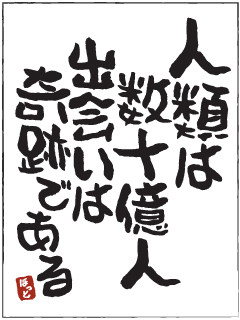 人類は
数十億人
出会いは
奇跡である
ほっと